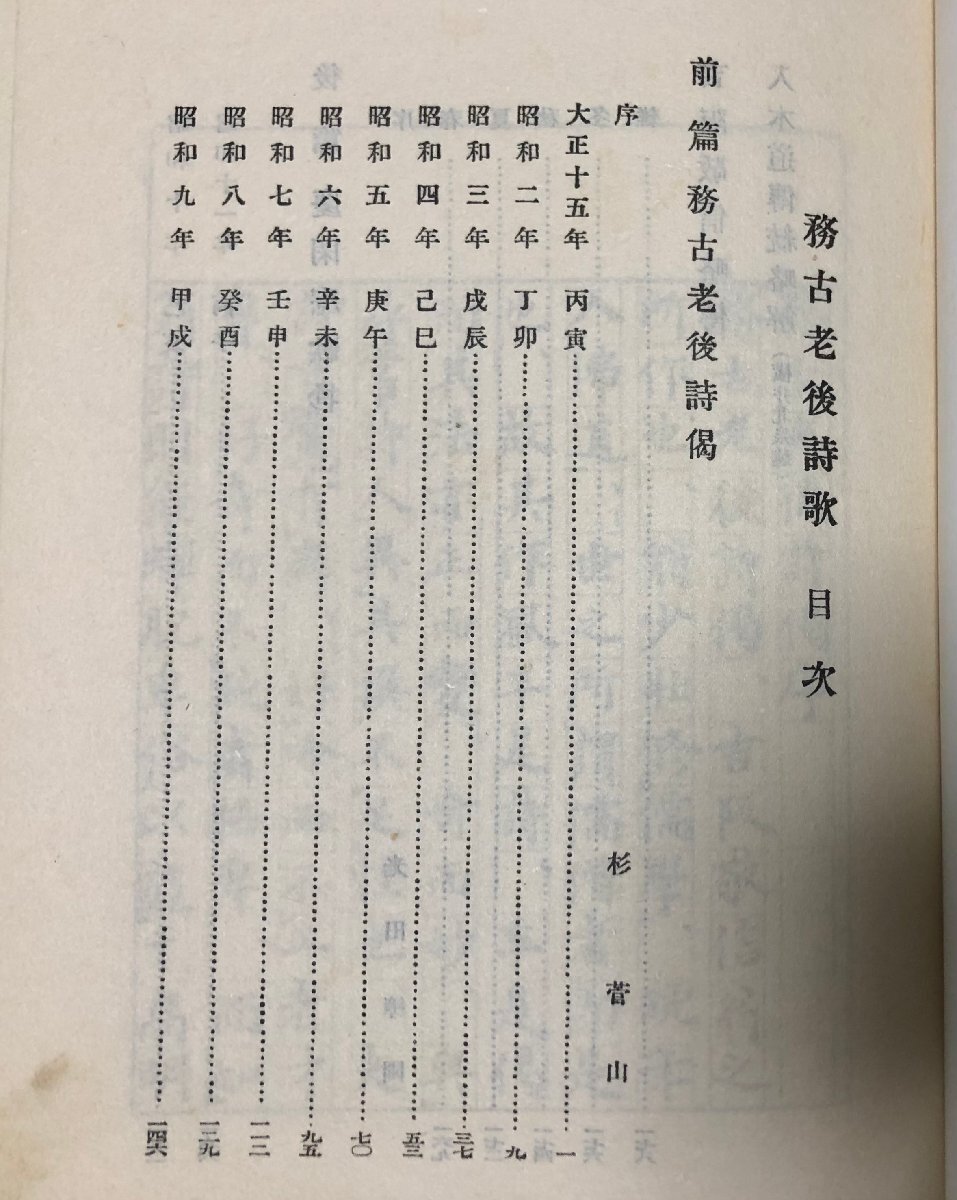 務古老後詩歌 目次
前篇 務古老後詩偈
序 杉菅山
大正十五年 丙寅………一
昭和二年 丁卯………九
昭和三年 戊辰………三七
昭和四年 己巳………五三
昭和五年 庚午………七〇
昭和六年 辛未………九五
昭和七年 壬申………一一二
昭和八年 癸酉………一二九
昭和九年 甲戌………一四六